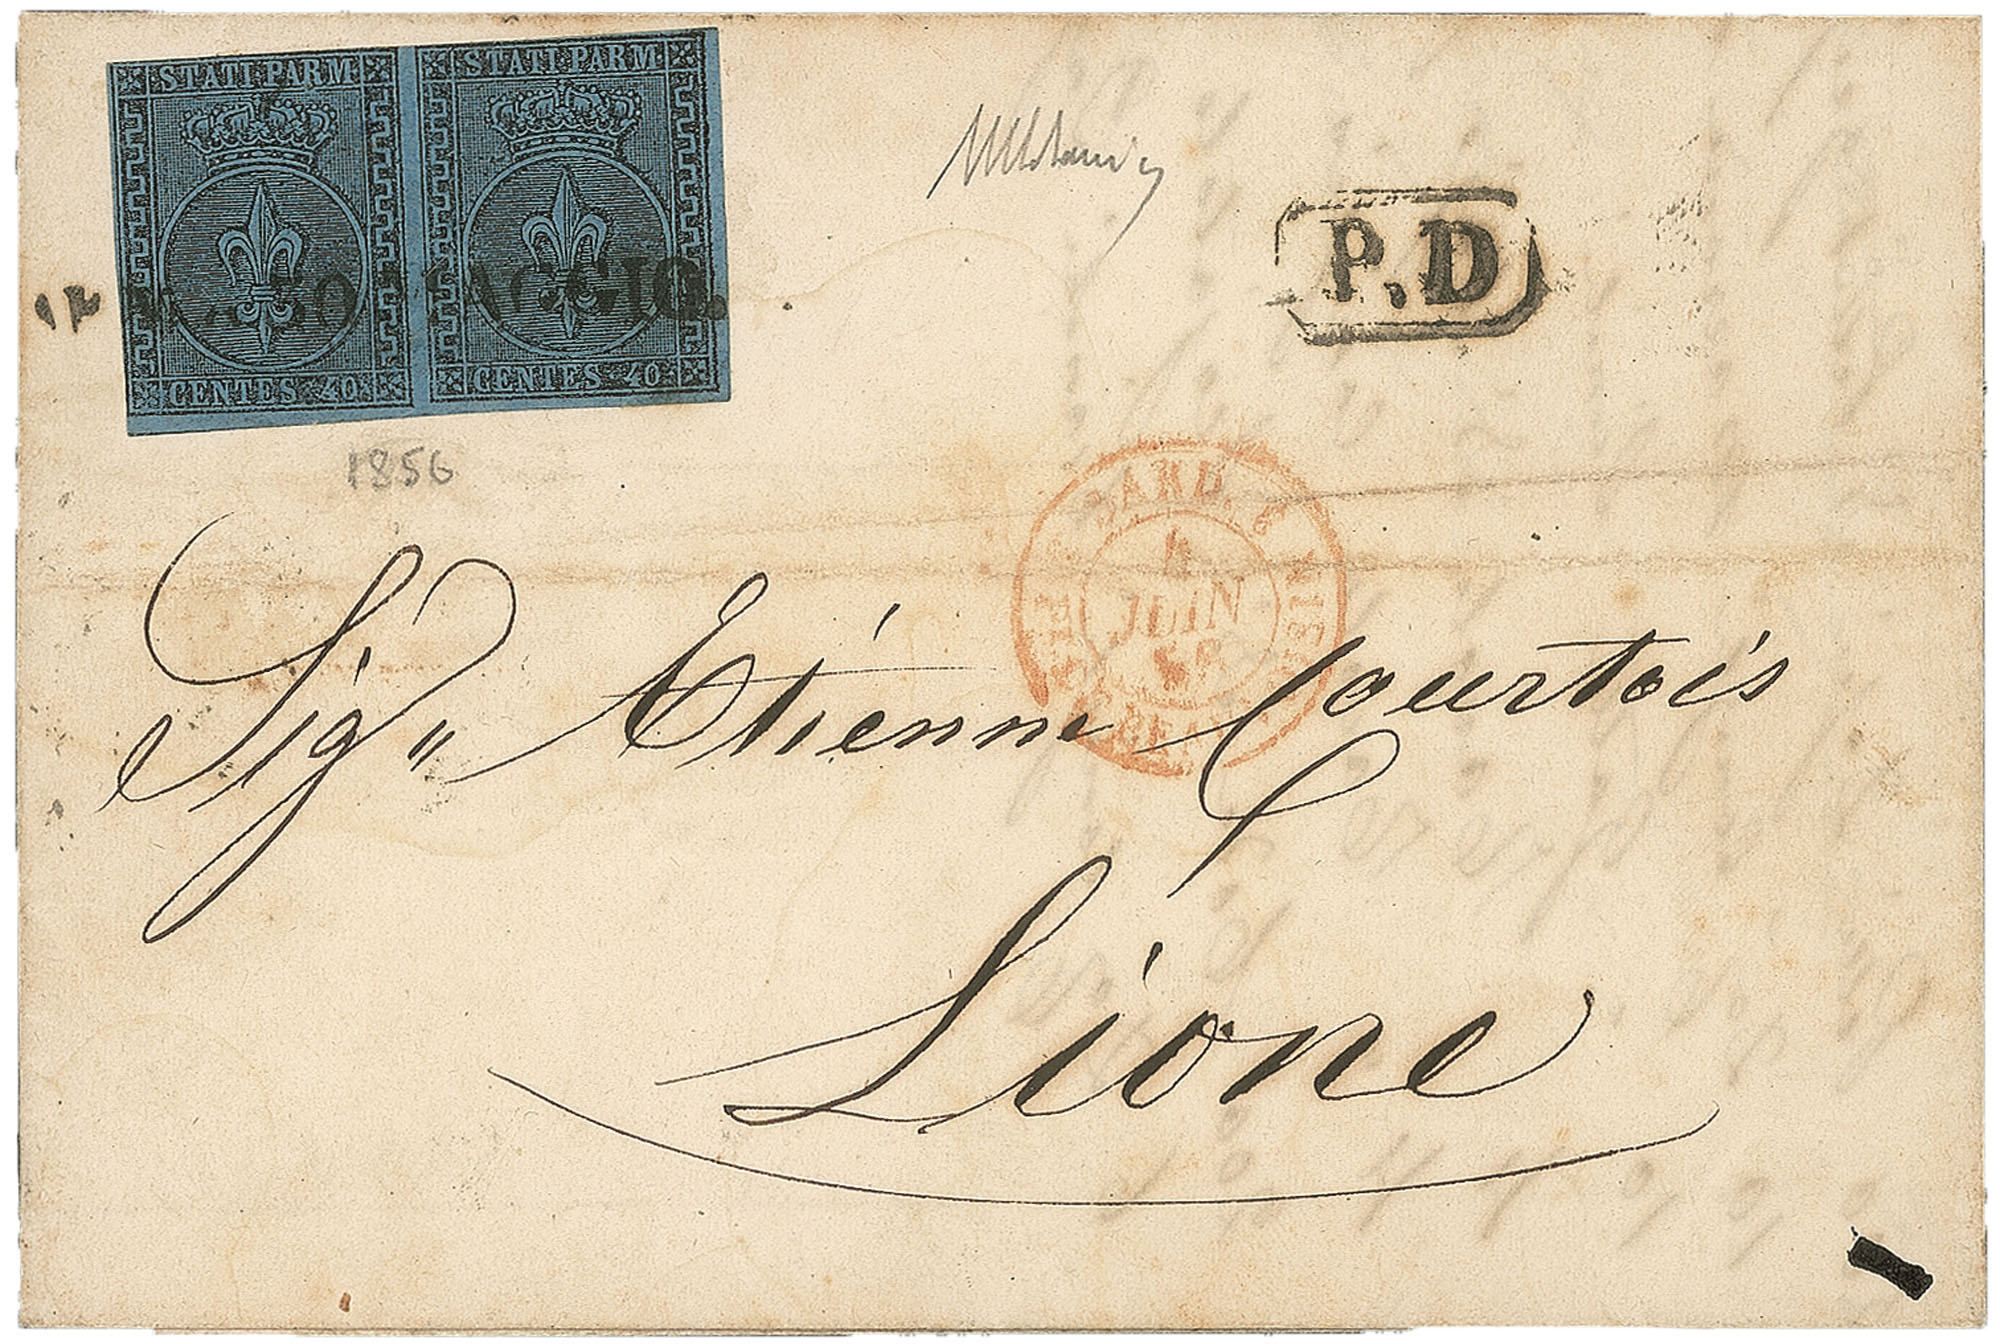 STATI PARM STATI PARM
CENTES 40 CENTES 40
P.D
1856
SARD.
4
JUIN
Sig.r Etiénne Courtois
Lione